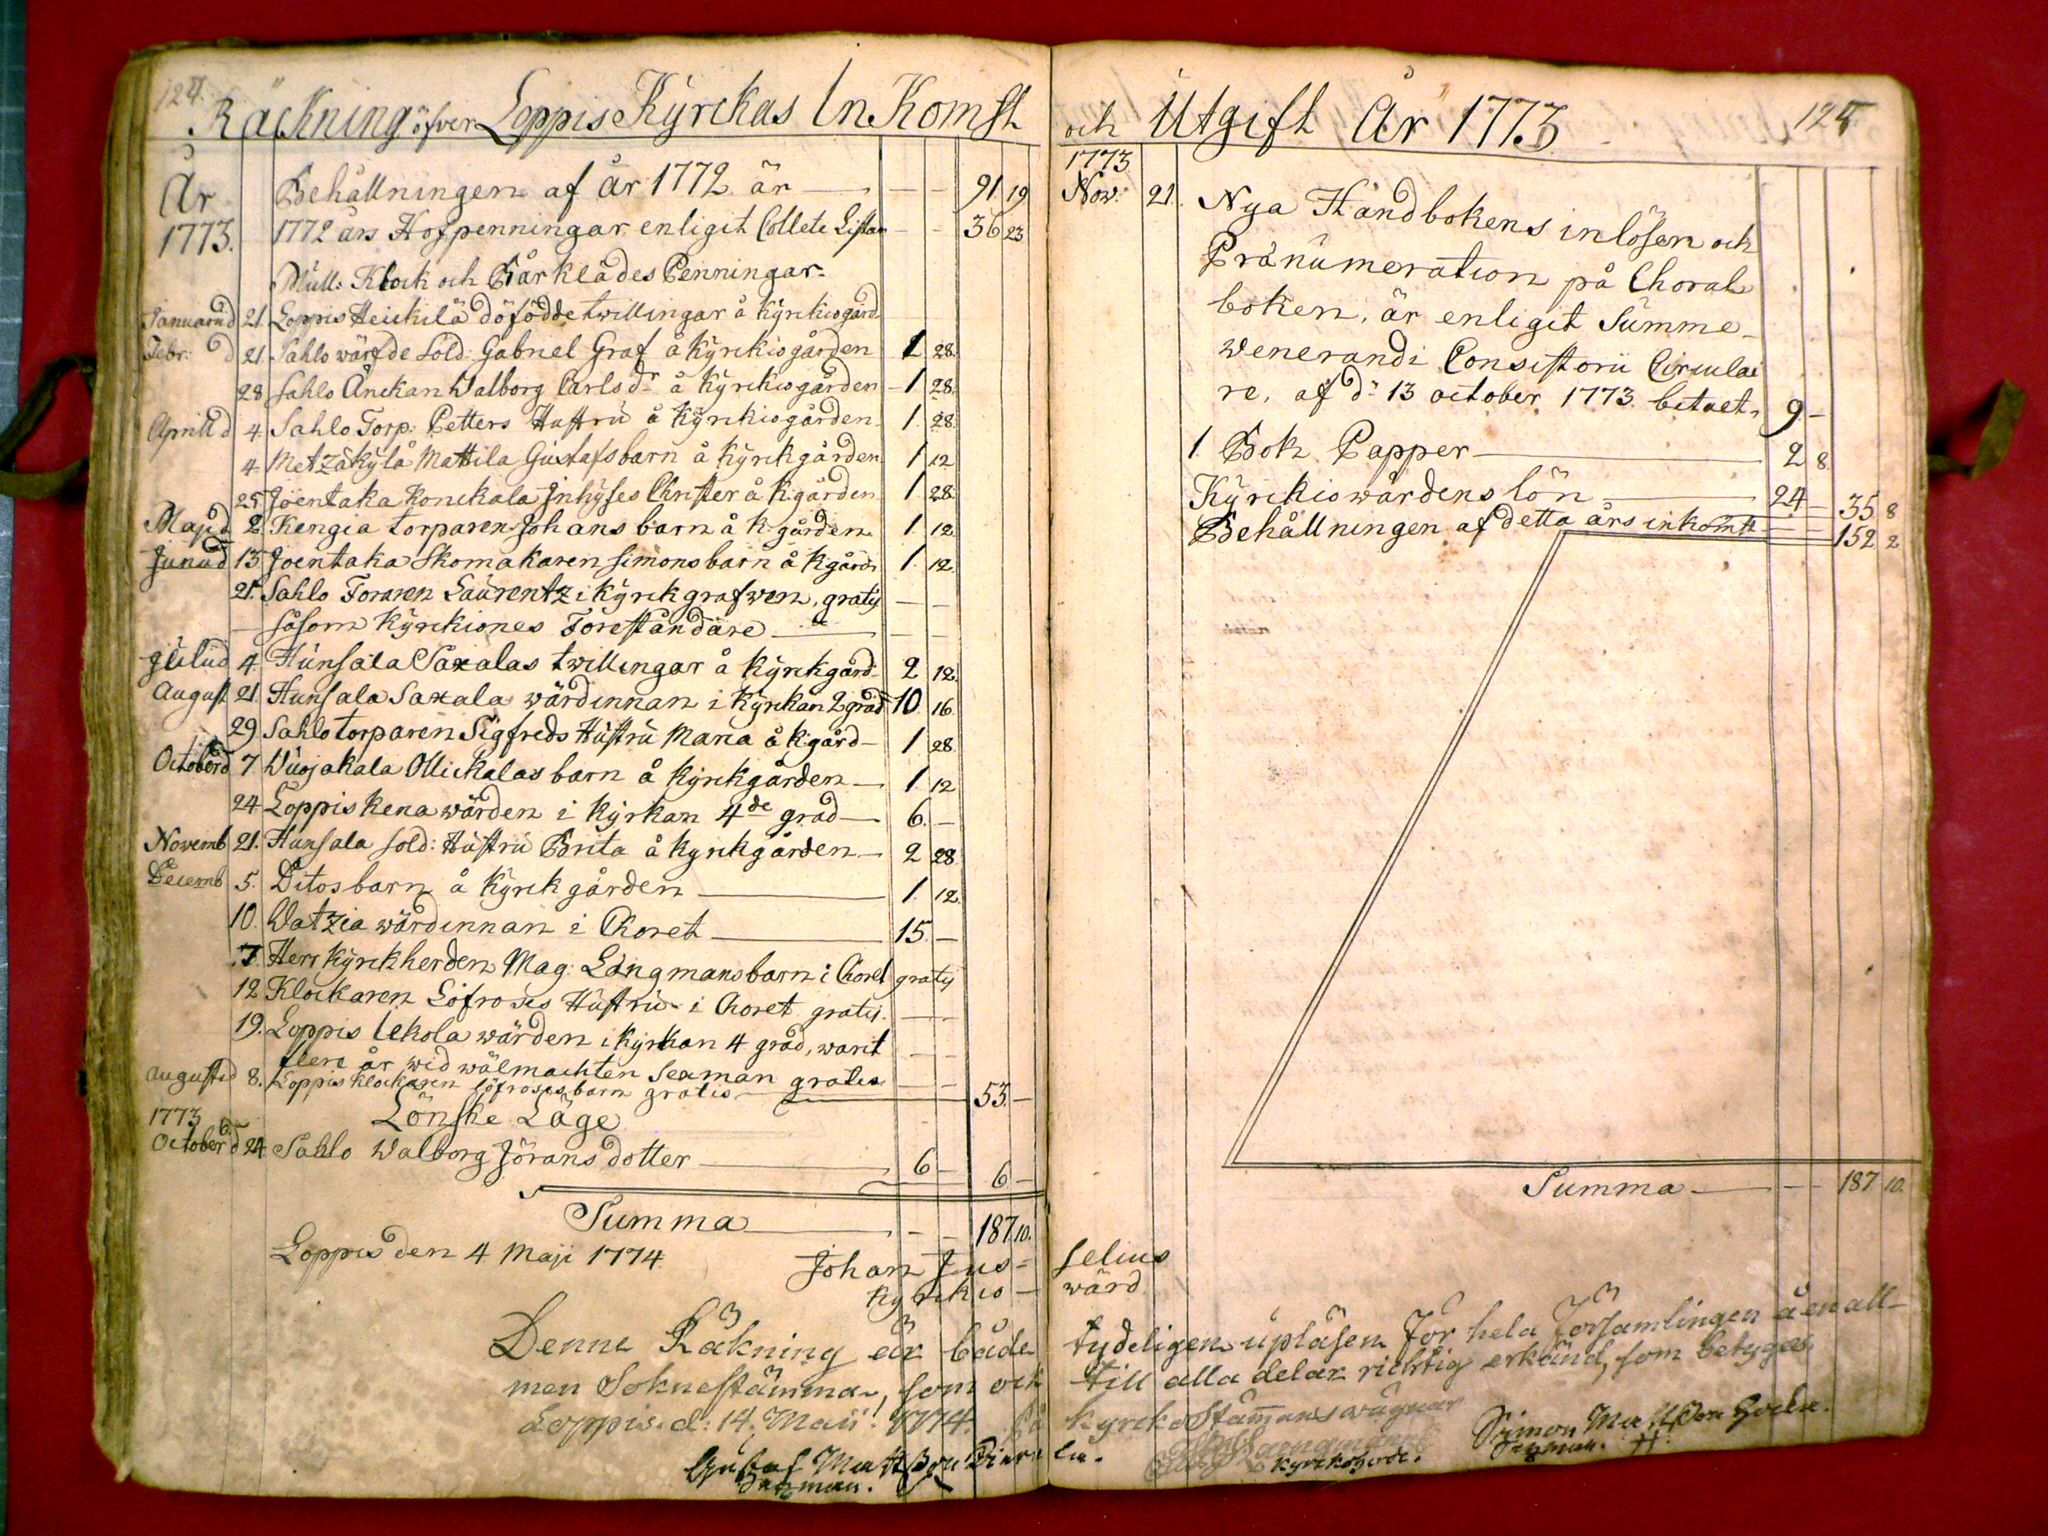 124.
Räckning öfver Loppis Kyrckas InKomst
År Behållningen af år 1772 är — 91 19
1773. 1772 års Hofpenningar enligit Collete Listan — 36 23
Mull: Klock och Bårklädes Penningar.
Januarii d 21. Loppis Heickilä döfödde twillingar å Kyrckiogård
Febr: d 21 Sahlo wärfde Sold: Gabriel Graf å Kyrckiogården 1 28.
28 Sahlo Änckan Walborg Carls dr å Kyrckiogården — 1 28.
Aprill d 4. Sahlo Torp: Petters Hustru å Kyrckiogården. 1. 28.
4 Metzäkylä Mattila Gustafs barn å Kyrckgården 1 12
25 Joentaka Konckala Inhyses Christer å K:gården 1 28.
Maji d 2. Kengia torparen Johans barn å K:gården. 1. 12.
Junii d 13 Joentaka Skomakaren Simons barn å Kgård. 1. 12.
21. Sahlo Foraren Laurentz i Kyrckgrafwen, gratis — —
såsom Kyrckiones Föreståndare — —
Julii d 4. Hunsala Saxalas twillingar å Kyrckgård. 2 12.
August 21. Hunsala Saxala wärdinnan i Kyrckan 2 grad 10. 16.
29 Sahlo torparen Sigfreds Hustru Maria å K:gård — 1 28.
October d 7 Wuojakala Ollickalas barn å Kyrckgården — 1 12
24 Loppis Kena wärden i Kyrkan 4de grad — 6. —
Novemb 21. Hunsala sold: Hustru Brita å Kyrckgården — 2 28
Decemb 5. Ditos barn å Kyrckgården — 1. 12.
10. Watzia wärdinnan i Choret — 15. —
7 Herr Kyrckherden Mag: Långmans barn i Choret gratis
12 Klockaren Löfroses Hustru i Choret gratis. — —
19. Loppis Uckola wärden i Kyrkan 4 grad, warit
flere år wid wälmachten Sexman gratis — —
Augusti d 8. Loppis klockaren Löfroses barn gratis — 53. —
Lönske Läge
1773
October d 24 Sahlo Walborg Jörans dotter — 6 — 6 —
Summa — 187 10.
Loppis den 4 Maji 1774.
Johan Jus=
Kyrckio —
Denne Räkning är både
men Soknestämma, som ock
Loppis. d: 14. Maii 1774. På
Gustaf Mattsson
Sexman.
och Utgift År 1773 125.
1773
Nov: 21. Nya Handbokens inlösen och
Pränumeration på Choral
boken, är enligit Summe-
Wenerandi Consistorii Circulai
re, af d: 13 october 1773 betalt. 9 —
1 Bok Papper — 2 8.
Kyrckiowärdens lön — 24 — 35 8
Behållningen af detta års inkomst — 152 2
Summa — 187 10.
selius
wärd
tydeligen upläsen för hela Församlingen å en all-
till alla delar richtig erkänd, som betygas
kyrckostämmans wägnar
Kyrckoherde.
Simon Mattsson
Sexman.